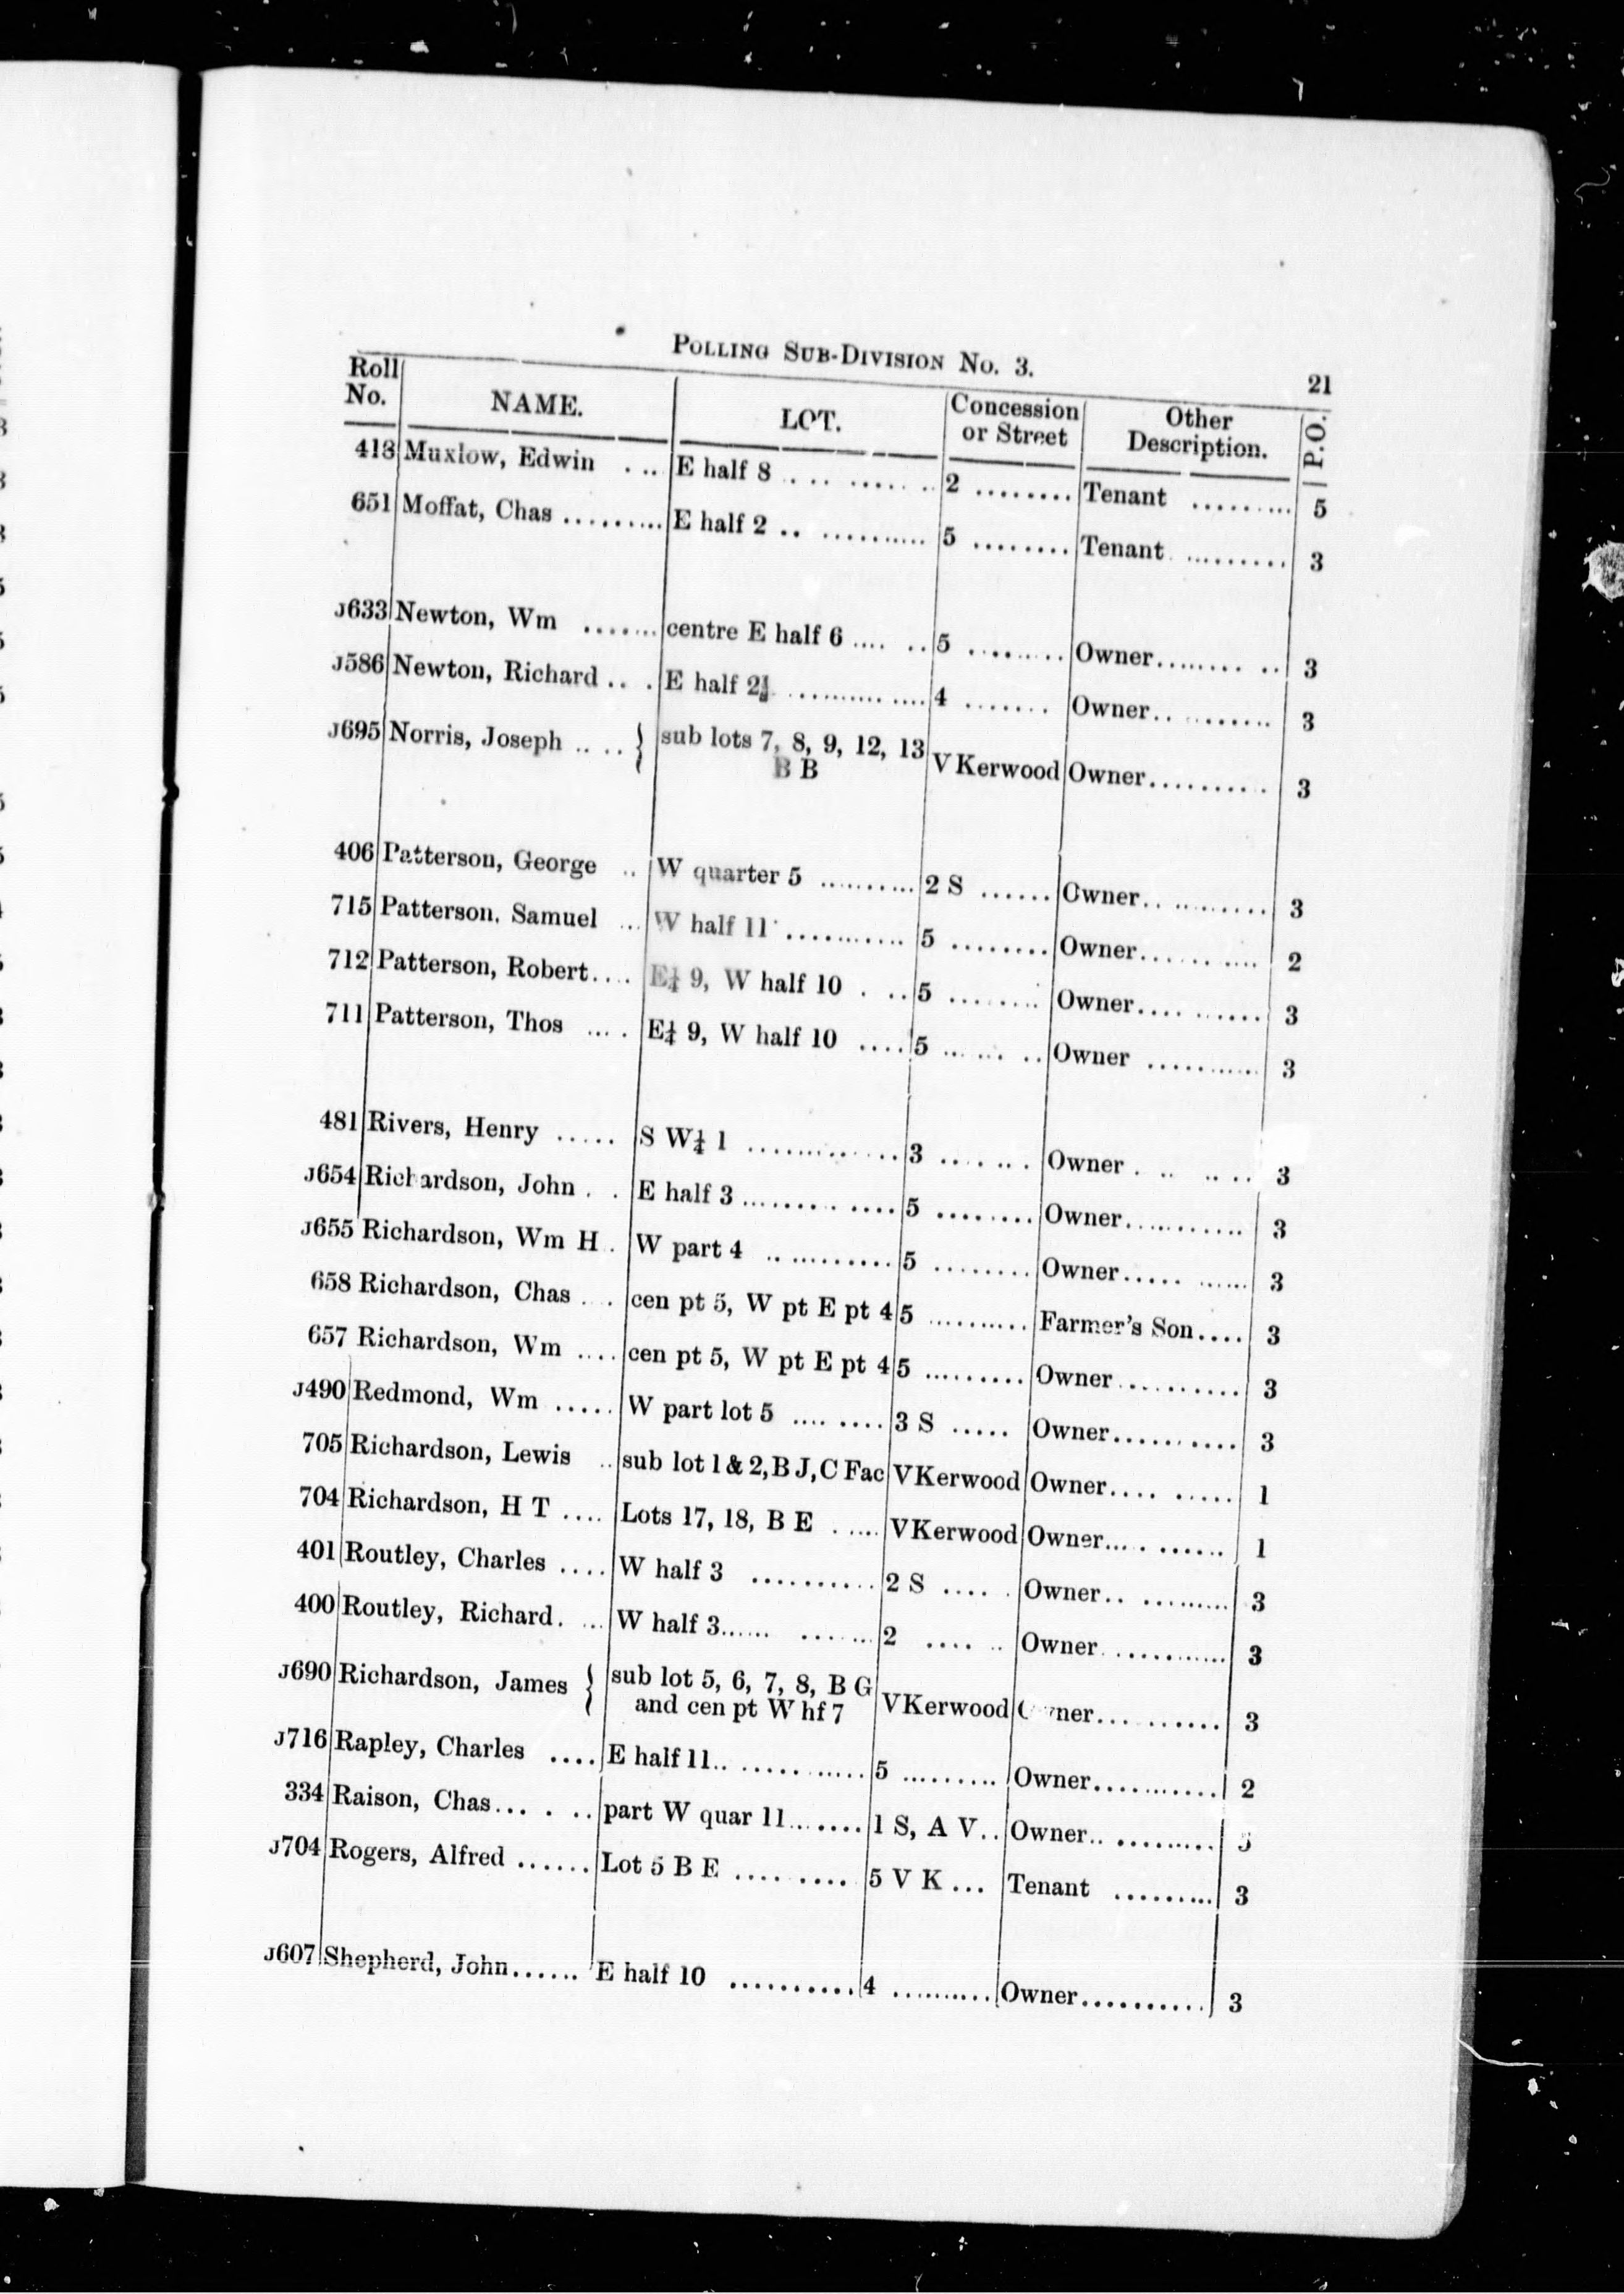 POLLING SUB-DIVISION No. 3. 21
Roll No. NAME. LOT. Concession or Street Other Description. P.O.
413 Muxlow, Edwin . .. E half 8 . .. ...... . .. 2 ........ Tenant ......... 5
651 Moffat, Chas ......... E half 2 .. .......... 5 ........ Tenant ......... 3
J633 Newton, Wm ....... centre E half 6 .... .. 5 ......... Owner........ .. 3
J586 Newton, Richard .. . E half 2½ .............. 4 ....... Owner.. ......... 3
J695 Norris, Joseph .. .. } sub lots 7, 8, 9, 12, 13 V Kerwood Owner.......... 3
B B
406 Patterson, George .. W quarter 5 .......... 2 S ...... Owner.. .......... 3
715 Patterson. Samuel ... W half 11 ........... 5 ........ Owner...... .... 2
712 Patterson, Robert.... E¼ 9, W half 10 . .. 5 ........ Owner.... ...... 3
711 Patterson, Thos .... . E¼ 9, W half 10 .... 5 ... ... .. Owner .......... 3
481 Rivers, Henry ..... S W¼ 1 .............. 3 .... .. . Owner . .. .. .. 3
J654 Richardson, John . . E half 3 ......... .... 5 ........ Owner........... 3
J655 Richardson, Wm H . W part 4 .. .......... 5 ........ Owner..... ...... 3
658 Richardson, Chas . . . cen pt 5, W pt E pt 4 5 .......... Farmer's Son.... 3
657 Richardson, Wm .... cen pt 5, W pt E pt 4 5 ......... Owner........... 3
J490 Redmond, Wm ..... W part lot 5 .... .... 3 S ..... Owner.......... 3
705 Richardson, Lewis .. sub lot 1 & 2, B J, C Fac V Kerwood Owner.... ..... 1
704 Richardson, H T .... Lots 17, 18, B E . .... V Kerwood Owner.... ...... 1
401 Routley, Charles .... W half 3 .......... 2 S .... . Owner.. ......... 3
400 Routley, Richard. ... W half 3...... ....... 2 .... .. Owner............ 3
J690 Richardson, James { sub lot 5, 6, 7, 8, B G V Kerwood Owner.......... 3
and cen pt W hf 7
J716 Rapley, Charles .... E half 11.. ........... 5 ......... Owner........... 2
334 Raison, Chas... . .. part W quar 11....... 1 S, A V.. Owner.. .........
J704 Rogers, Alfred ...... Lot 5 B E .... .... 5 V K ... Tenant ......... 3
J607 Shepherd, John...... E half 10 .......... 4 ......... Owner.......... 3